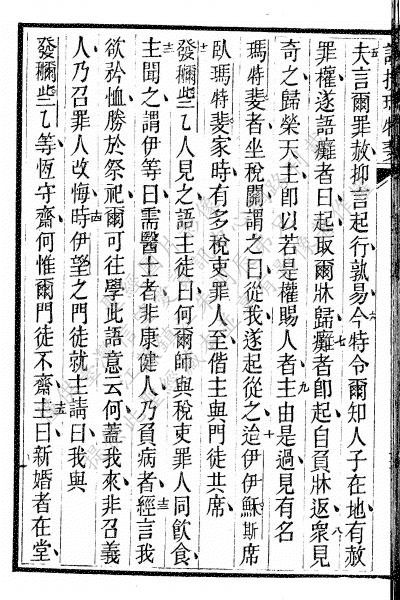 五夫言爾罪赦抑言起行孰易六今特令爾知人子在地有赦
罪權遂語癱者曰起取爾牀歸七癱者卽起自負牀返八衆見
奇之歸榮天主卽以若是權賜人者九主由是過見有名
瑪特斐者坐稅關謂之曰從我遂起從之十迨伊伊穌斯席
臥瑪特斐家時有多稅吏罪人至偕主與門徒共席
十一發穪些乙人見之語主徒曰何爾師與稅吏罪人同飲食
主聞之謂伊等曰需醫士者非康健人乃負病者十三經言我
欲矜恤勝於祭祀爾可往學此語意云何蓋我來非召義
人乃召罪人改悔十四時伊望之門徒就主請曰我與
發穪些乙等恆守齋何惟爾門徒不齋十五主曰新婚者在堂